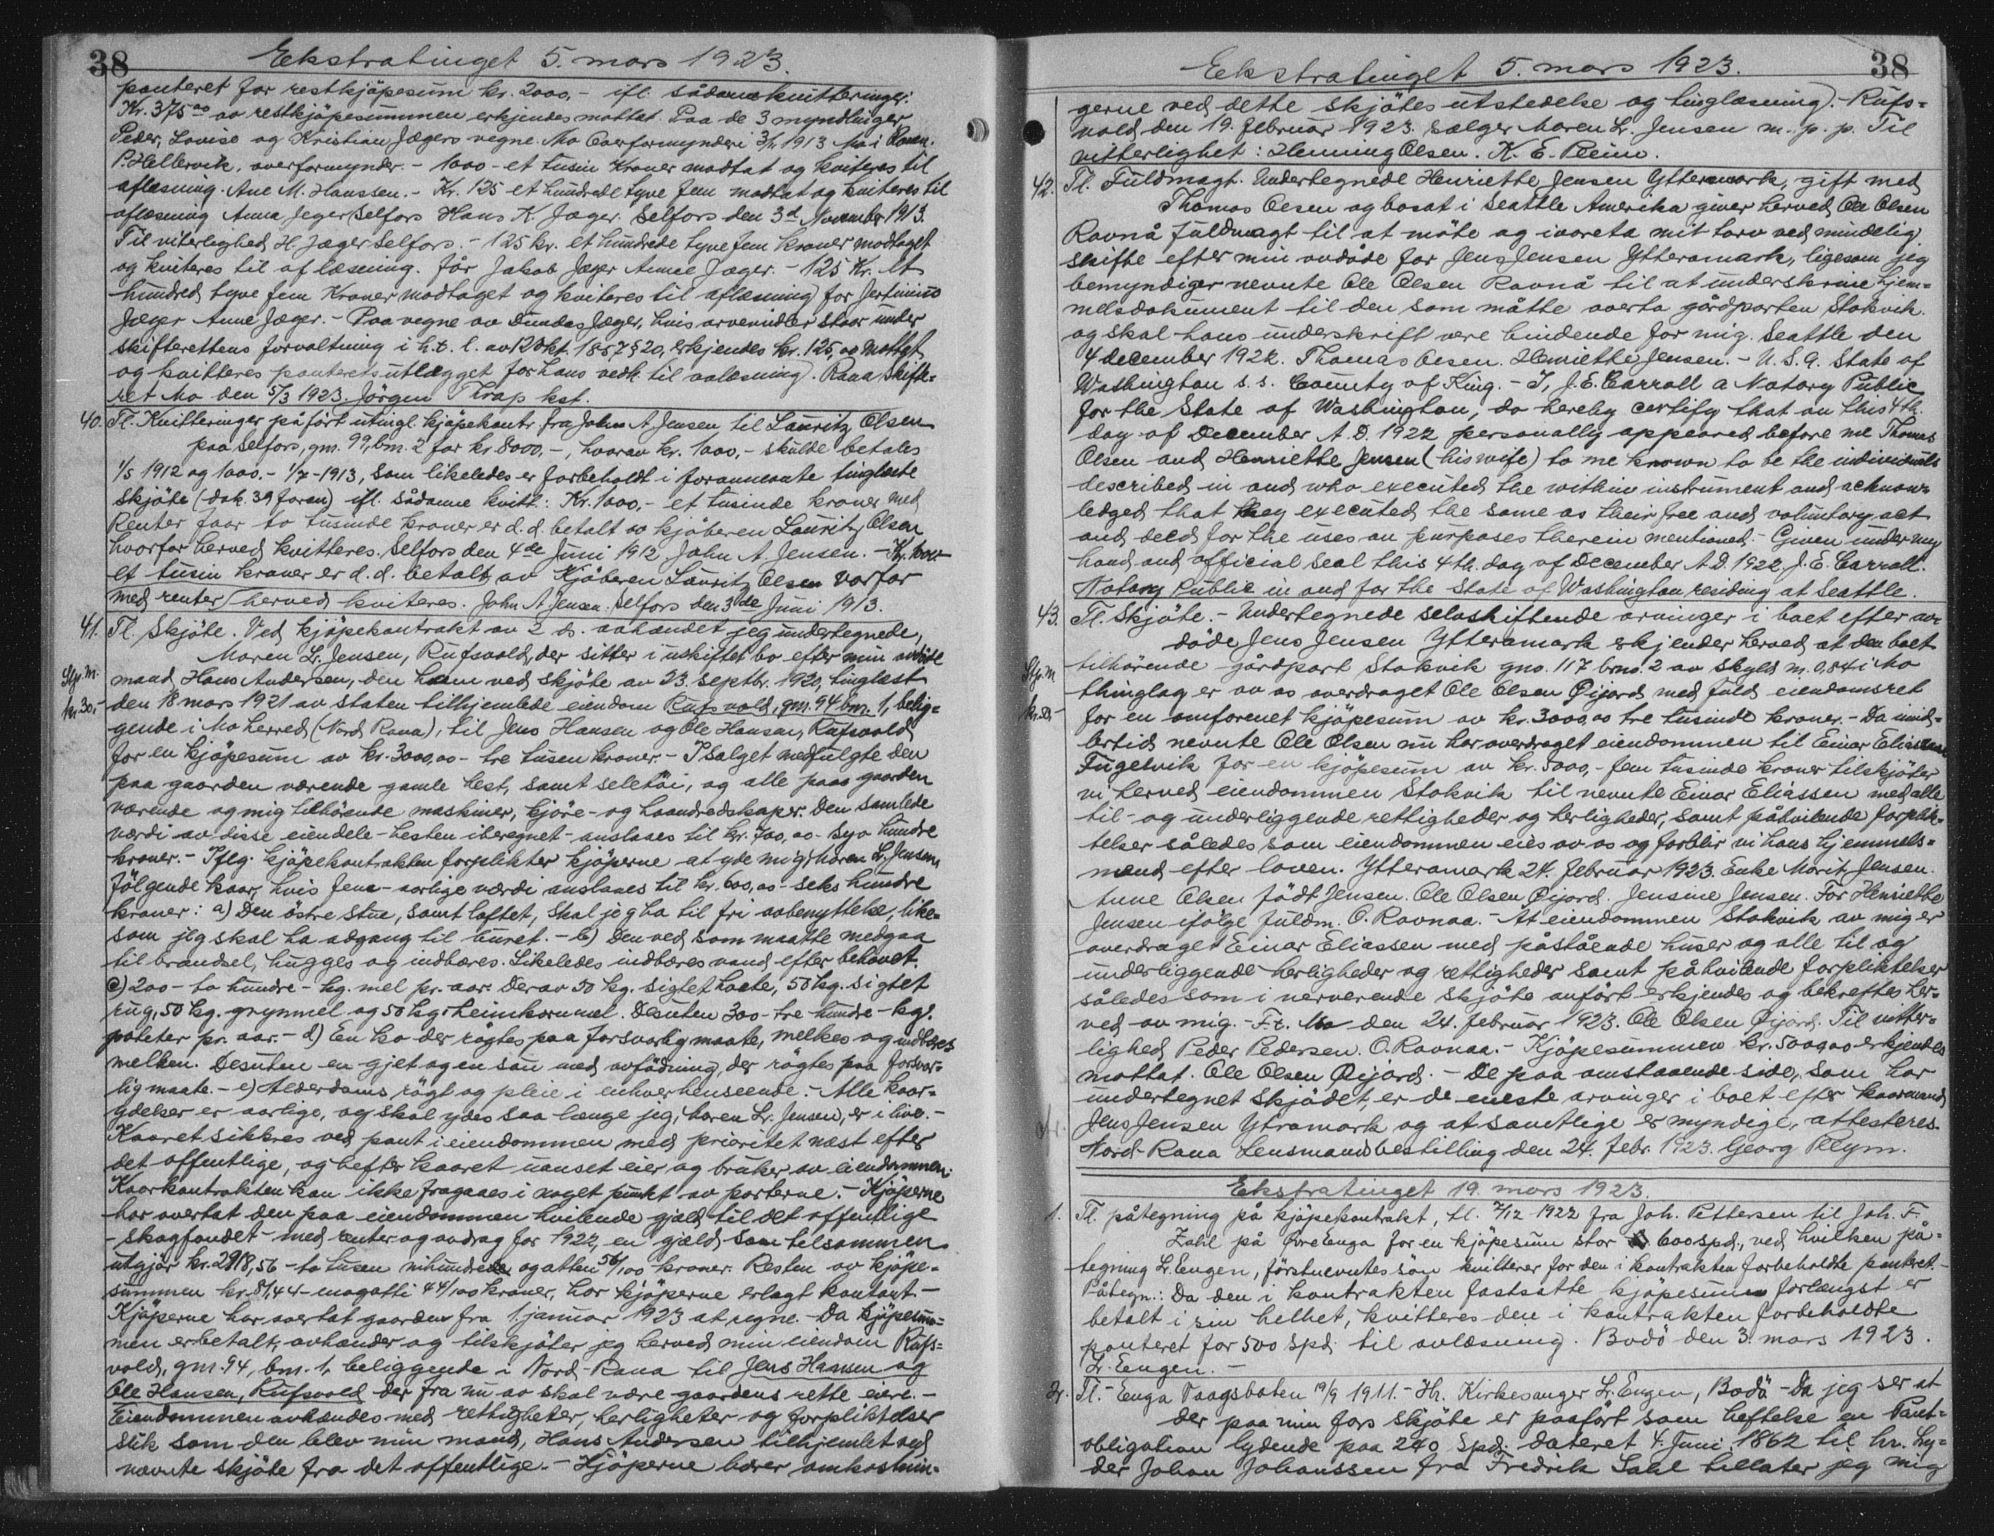 38
Ekstratinget 5. mars 1923.
panteret for restkjöpesum kr. 2000,- ifl. sådanne kvitteringer:
Kr. 375 00 av restkjöpesummen erkjendes mottat. Paa de 3 myndlinger
Peder, Lovise og Kristian Jægers vegne. Mo Overformynderi 3/1 1913 Mo i Ranen.
P. Hellervik, overformynder. - 1000 - et tusin Kroner modtat og kviteres til
aflæsning. Ane M. Hanssen. - Kr. 125 et hundrede tyve fem modtat og kviteres til
aflæsning Anna Jeger Selfors Hans K. Jæger. Selfors den 3d November 1913.
Til viterlighed H. Jæger Selfors. - 125 kr. et hundrede tyve fem kroner modtaget
og kviteres til aflæsning. får Jakob Jæger Anne Jæger. - 125 Kr. et
hundred tyve fem Kroner modtaget og kviteres til aflæsning for
Jæger Anne Jæger. - Paa vegne av Dundas Jæger, hvis arvemidler staar under
skifterettens forvaltning i h.t. l. av 12 Okt. 1857 § 20, erkjendes kr. 125,00 mottat
og kvitteres panteretsutlægget for hans vedk. til avlæsning. Rana Skifte-
ret Mo den 5/3 1923. Jörgen Thrap kst.
40. Tl. Kvitteringer påfört utingl. kjöpekontr. fra John A. Jensen til Lauritz Olsen
paa Selfors, gn. 99, bn. 2 for kr 8000,-, hvorav kr. 1000,- skulde betales
1/5 1912 og 1000.- 1/7-1913, som likeledes er forbeholdt i forannevnte tinglæste
skjöte (dok. 39 foran) ifl. sådanne kvitt: Kr. 1000,- et tusinde kroner med
Renter faar to tusinde kroner er d.d. betalt av kjöberen Lauritz Olsen
hvorfor herved kvitteres. Selfors den 4de Juni 1912 John A. Jensen. - Kr. 1000
et tusin kroner er d.d. betalt av Kjöberen Lauritz Olsen vorfor
med renter herved kviteres. John A Jensen. Selfors den 3de Juni 1913.
41. Tl. Skjöte. Ved kjöpekontrakt av 2 ds. avhændet jeg undertegnede,
Maren L. Jensen, Rufsvold, der sitter i uskiftet bo efter min avdöde
Stp.m. mand Hans Andersen, den ham ved skjöte av 23. septbr. 1920, tinglæst
kr. 30,- den 18 mars 1921 av Staten tilhjemlede eiendom Rufsvold, gn. 94 bn. 1, belig-
gende i Mo herred (Nord Rana), til Jens Hansen og Ole Hansen, Rufsvold
for en kjöpesum av kr. 3000,00 - tre tusen kroner. - I salget medfulgte den
paa gaarden værende gamle hest, samt seletöi, og alle paa gaarden
værende og mig tilhörende maskiner, kjöre- og haandredskaper. Den samlede
værdi av disse eiendele - hesten iberegnet - anslaaes til kr. 700,00 - syv hundre
kroner. - Iflg. kjöpekontrakten forplikter kjöperne at yde mig, Maren L. Jensen,
fölgende kaar, hvis fem-aarlige værdi anslaaes til kr. 600,00 - seks hundre
kroner: a) Den östre stue, samt loftet, skal jeg ha til fri avbenyttelse, like-
som jeg skal ha adgang til buret. - b) Den ved som maatte medgaa
til brændsel, hugges og indbæres. Likeledes indbæres vand efter behovet.
c) 200 - to hundre - kg. mel pr. aar. Derav 50 kg. sigtet hvete, 50 kg. sigtet
rug, 50 kg. grynmel og 50 kg. heimkornmel. Desuten 300 - tre hundre - kg.
poteter pr. aar. - d) En ko der rögtes paa forsvarlig maate, melkes og indbæres
melken. Desuten en gjet og en sau med avfödning, der rögtes paa forsvar-
lig maate. - e) Alderdoms rögt og pleie i enhver henseende. - Alle kaar-
ydelser er aarlige, og skal ydes saa længe jeg, Maren L. Jensen, er i live. -
Kaaret sikkres ved pant i eiendommen med prioritet næst efter
det offentlige, og hefter kaaret uanset eier og bruker av eiendommen.
Kaarkontrakten kan ikke fragaaes i noget punkt av parterne. - Kjöperne
har overtat den paa eiendommen hvilende gjæld til det offentlige
- skogfondet - med renter og avdrag for 1922, en gjæld som tilsammen
utgjör kr. 2918,56 - to tusen nihundrede og atten 56/100 kroner. Resten av kjöpe-
summen kr. 81,44 - enogotti 44/100 kroner, har kjöperne erlagt kontant -
Kjöperne har overtat gaarden fra 1. januar 1923 at regne. - Da kjöpesum-
men er betalt, avhænder og tilskjöter jeg herved min eiendom Rufs-
vold, gn. 94, bn. 1, beliggende i Nord-Rana til Jens Hansen og
Ole Hansen, Rufsvold der fra nu av skal være gaardens rette eiere. -
Eiendommen avhændes med rettigheter, herligheter og forpliktelser
slik som den blev min mand, Hans Andersen tilhjemlet ved
nævnte skjöte fra det offentlige. - Kjöperne bærer omkostnin-
38
Ekstratinget 5. mars 1923.
gerne ved dette skjötes utstedelse og tinglæsning. - Rufs-
vold den 19. februar 1923. Sælger Maren L. Jensen m.p.p. Til
vitterlighet: Henning Olsen. K. E. Pleim.
42. Tl. Fuldmagt. Undertegnede Henriette Jensen Ytteramark, gift med
Thomas Olsen og bosat i Seattle Amerika giver herved Ole Olsen
Ravnå fuldmagt til at möte og ivareta mit tarv ved mindelig
skifte efter min avdöde far Jens Jensen Ytteramark, ligesom jeg
bemyndiger nevnte Ole Olsen Ravnå til at underskrive hjem-
melsdokument til den som måtte overta gårdparten Stokvik
og skal hans underskrift være bindende for mig. Seattle den
4 december 1922. Thomas Olsen. Henriette Jensen. - U.S.A. State of
Washington s.s. County of King. - I, J. E. Carroll a Notary Public
for the State of Washington, do hereby certify that on this 4th.
day of December A.D. 1922 personally appeared before me Thomas
Olsen and Henriette Jensen (his wife) to me known to be the individuals
described in and who executed the within instrument and acknow-
ledged that they executed the same as their free and voluntary act
and deed for the uses an purposes therein mentioned. - Given under my
hand and official seal this 4th. day of December A.D. 1922 J. E. Carroll.
Notary Public in and for the State of Washington residing at Seattle.
43. Tl. Skjöte. - Undertegnede selvskiftende arvinger i boet efter av-
döde Jens Jensen Ytteramark erkjender herved at den boet
Stp.m tilhörende gårdpart Stokvik gno. 117 brno. 2 av skyld m. 0,84 i Mo
thinglag er av os overdraget Ole Olsen Öijord med fuld eiendomsret
for en omforenet kjöpesum av kr. 3000,00 tre tusinde kroner. - Da imid-
lertid nevnte Ole Olsen nu har overdraget eiendommen til Einar Eliassen
Fugelvik for en kjöpesum av kr. 5000,- fem tusinde kroner tilskjöter
vi herved eiendommen Stokvik til nevnte Einar Eliassen med alle
til- og underliggende rettigheder og herligheder, samt påhvilende forplik-
telser således som eiendommen eies av os og forblir vi hans hjemmels-
mend efter loven. Ytteramark 24. februar 1923. Enke Marit Jensen.
Anne Olsen födt Jensen. Ole Olsen Öijord. Jensine Jensen. For Henriette
Jensen ifölge fuldm. O. Ravnaa. - At eiendommen Stokvik av mig er
overdraget Einar Eliassen med påstående huser og alle til og
underliggende herligheder og rettigheder samt påhvilende forpliktelser
således som i nerverende skjöte anfört erkjendes og bekreftes her-
ved av mig. - F.t. Mo den 24. februar 1923. Ole Olsen Öijord. Til vitter-
lighed Peder Pedersen. O. Ravnaa. - Kjöpesummen kr. 5000,00 erkjendes
mottat. Ole Olsen Öijord. - De paa omstaaende side, som har
undertegnet skjödet, er de eneste arvinger i boet efter kaarmand
Jens Jensen Ytramark og at samtlige er myndige, attesteres.
Nord-Rana Lensmandsbestilling den 24. febr. 1923. Georg Plym.
Ekstratinget 19. mars 1923.
1. Tl. påtegning på kjöpekontrakt, tl. 7/12 1922 fra Joh. Pettersen til Joh. F.
Zahl på Övre Enga for en kjöpesum stor 600 spd., ved hvilken på-
tegning L. Engen, förstnevntes sön kvitterer for den i kontrakten forbeholdte panteret. -
Påtegn.: Da den i kontrakten fastsatte kjöpesum forlængst er
betalt i sin helhet, kvitteres den i kontrakten forbeholdte
panteret for 500 spd. til avlæsning. Bodö den 3. mars 1923.
L. Engen. -
2. Tl. - Enga Vaagsbaten 19/9 1911. - Hr. Kirkesanger L. Engen, Bodö - Da jeg ser at
der paa min fars skjöte er paafört som heftelse en Pant-
obligation lydende paa 240 Spd. dateret 4. Juni 1862 til hr. Ly-
der Johan Johanssen fra Fredrik Zahl tillater jeg mig